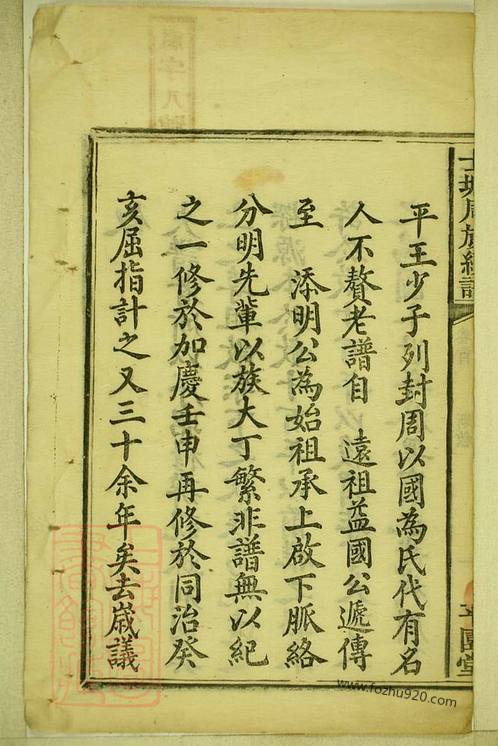 平王少子列封周以國為氏代有名
人不贅老譜自 遠祖益國公遞傳
至 添明公為始祖承上啟下脈絡
分明先輩以族大丁繁非譜無以紀
之一修於加慶壬申再修於同治癸
亥屈指計之又三十余年矣去歲議
周族續譜
www.fozhu920.com